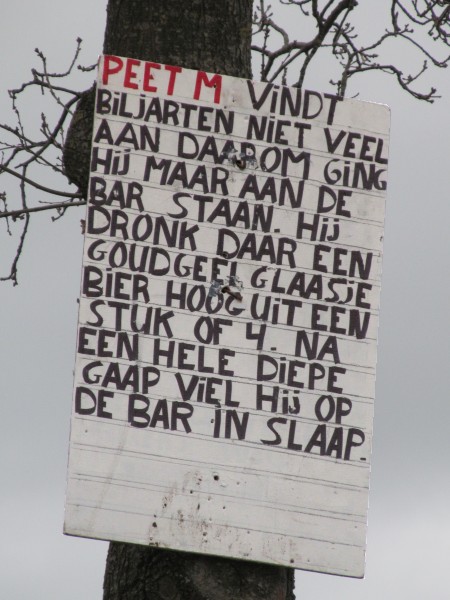 PEET M VINDT
BILJARTEN NIET VEEL
AAN DAAROM GING
HIJ MAAR AAN DE
BAR STAAN. HIJ
DRONK DAAR EEN
GOUDGEEL GLAASJE
BIER HOOGUIT EEN
STUK OF 4. NA
EEN HELE DIEPE
GAAP VIEL HIJ OP
DE BAR IN SLAAP.